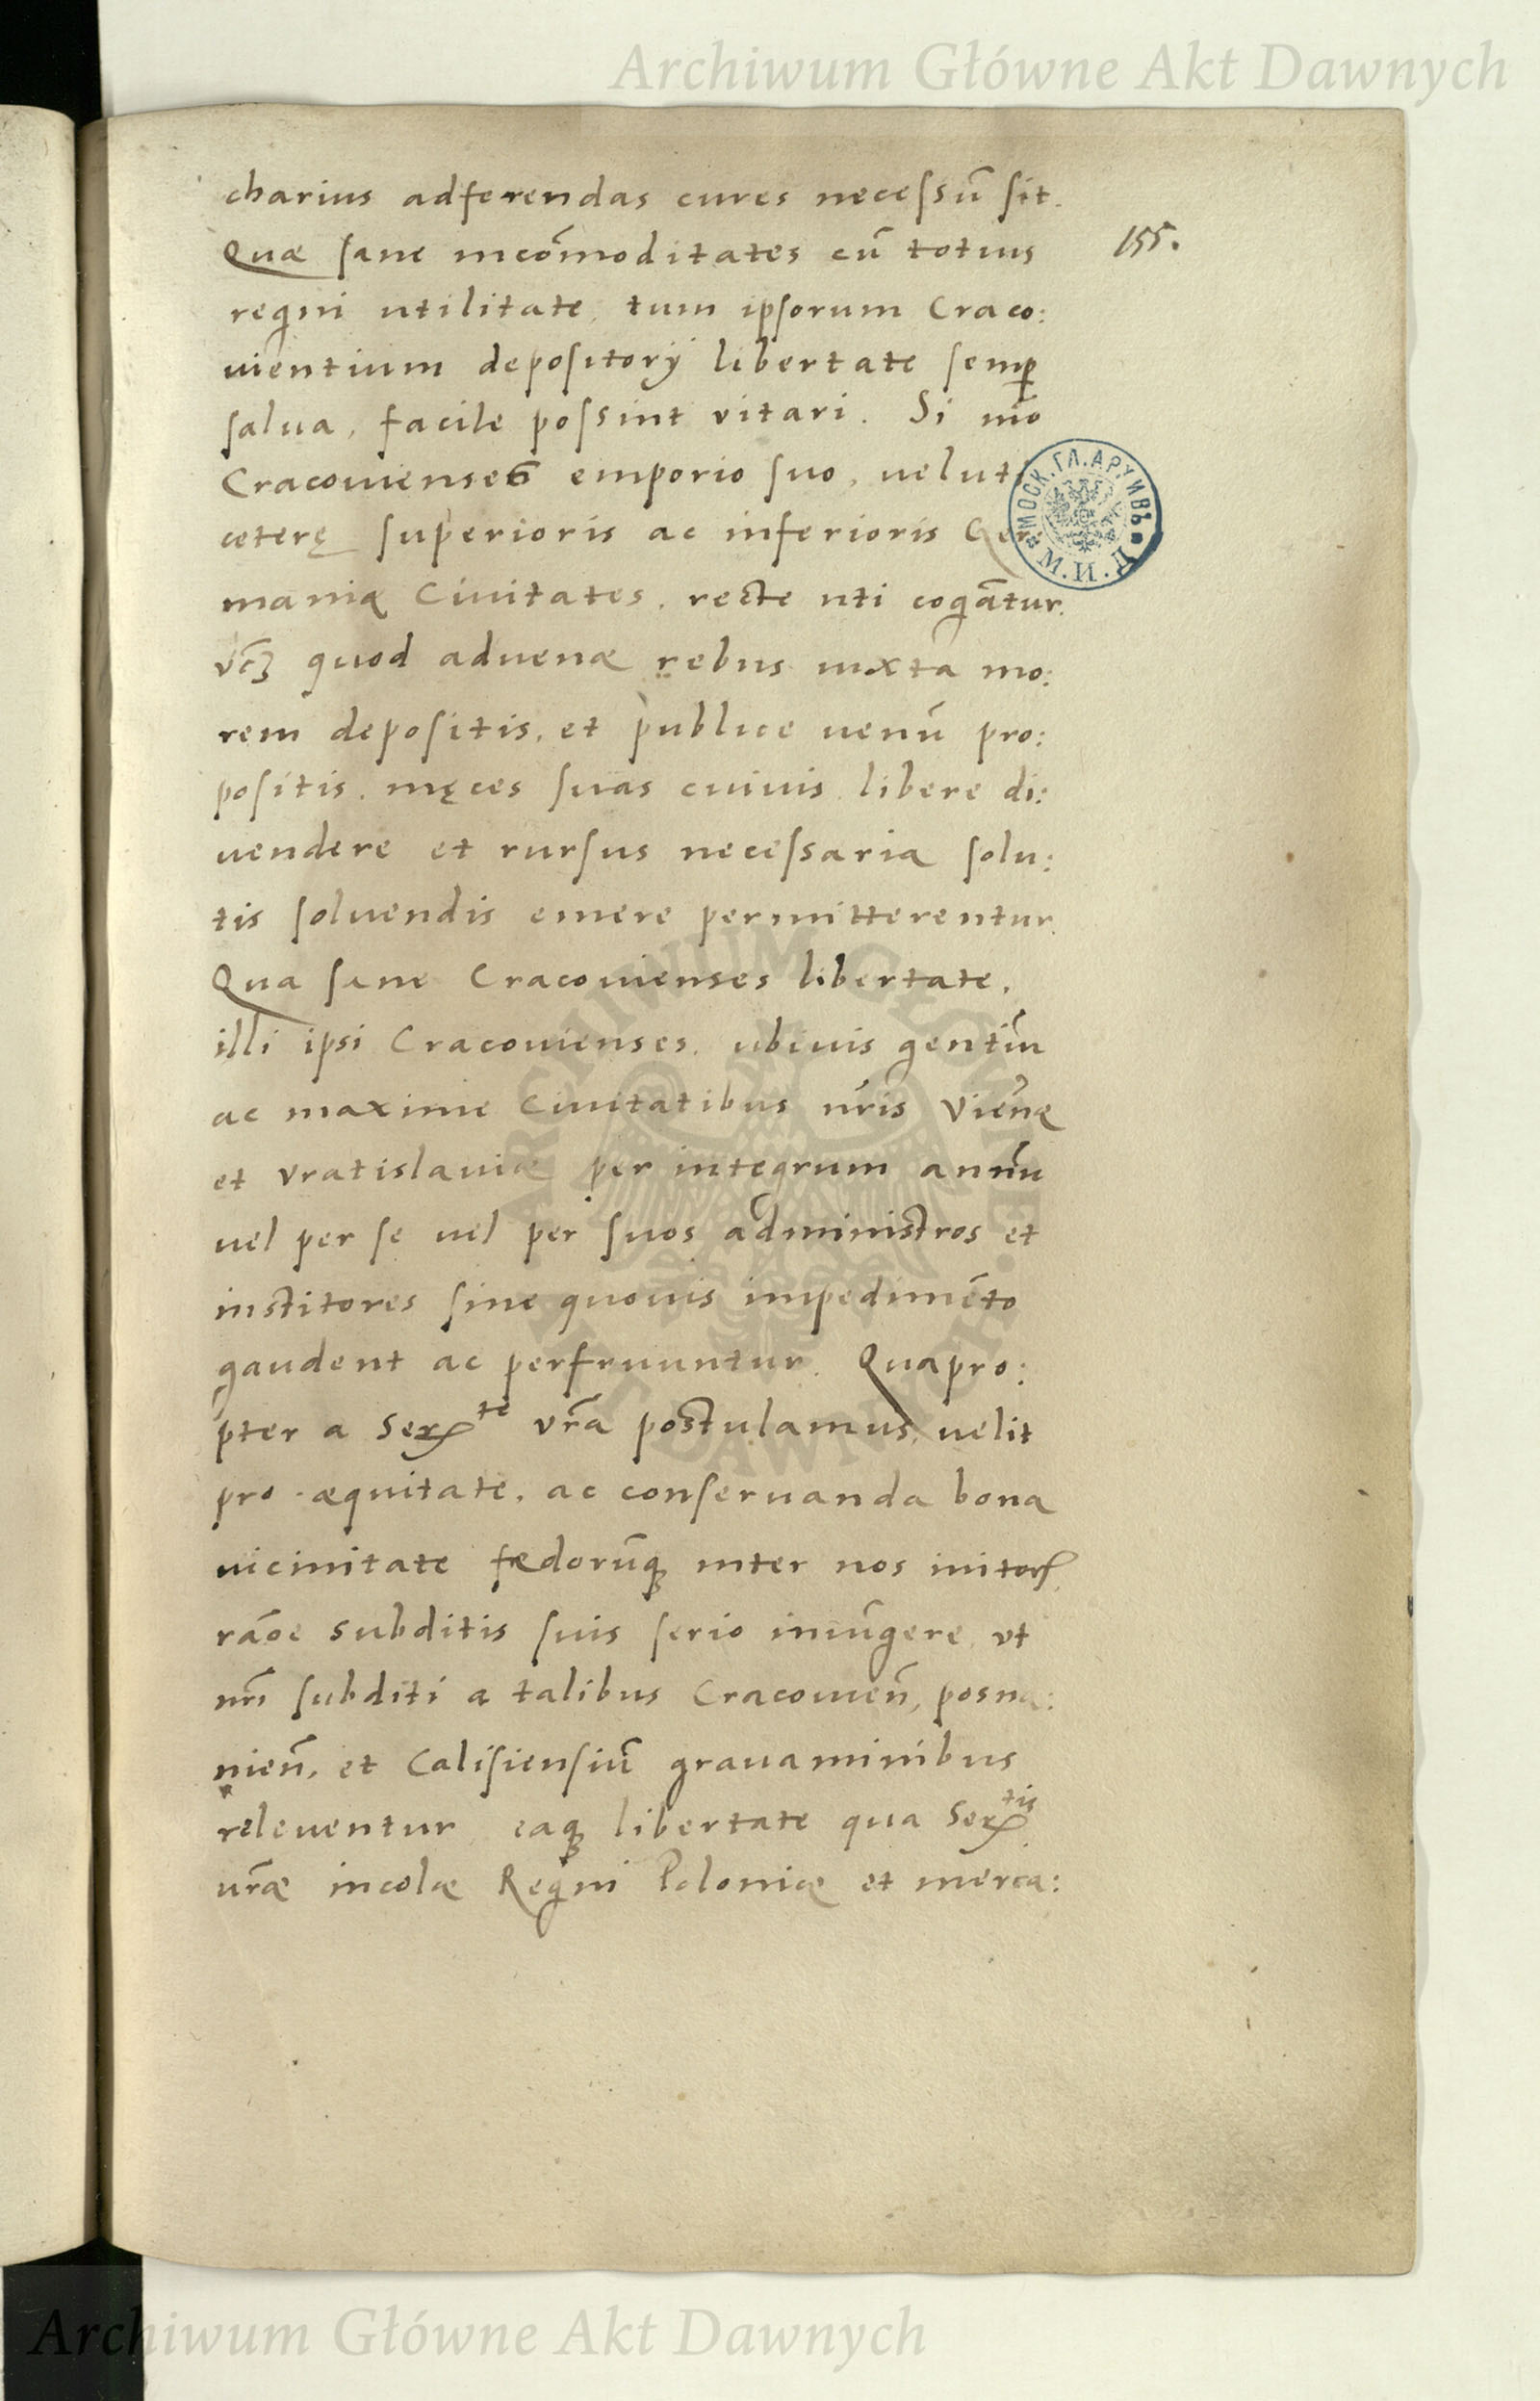 Archiwum Główne Akt Dawnych
charius adferendas cures necessũ sit.
155.
Quæ sane incõmoditates cũ totius
regni utilitate, tum ipsorum Craco:
uientium depositorÿ libertate semꝑ
salua, facile possint vitari. Si mõ
Cracouienses emporio suo, velut
ceterę superioris ac inferioris Ger
maniæ Ciuitates, recte uti cogãtur.
МОСК. ГЛ. АРХИВЪ
М. И. Д.
quod aduenæ rebus iuxta mo:
rem depositis, et publice uenũ pro:
positis, męces suas cuiuis libere di:
uendere et rursus necessaria solu:
tis soluendis emere permitterentur.
Qua sane Cracouienses libertate,
illi ipsi Cracouienses, ubiuis gentiũ
ac maxime Ciuitatibus nr̃is Viẽnæ
et Vratislauiæ per integrum annũ
uel per se uel per suos administros et
institores sine quouis impedimẽto
gaudent ac perfruuntur. Quapro:
pter a Serᵗᵉ vr̃a postulamus, uelit
pro æquitate, ac conseruanda bona
uicinitate fædorũq; inter nos initoꝝ
rãoe subditis suis serio iniũgere, vt
nr̃i subditi a talibus Cracouieñ, posna:
nieñ, et Calisiensiũ grauaminibus
releuentur eaq; libertate qua Serᵗⁱˢ
ur̃æ incolæ Regni Poloniæ et merca:
ARCHIWUM GŁÓWNE
AKT DAWNYCH
Archiwum Główne Akt Dawnych